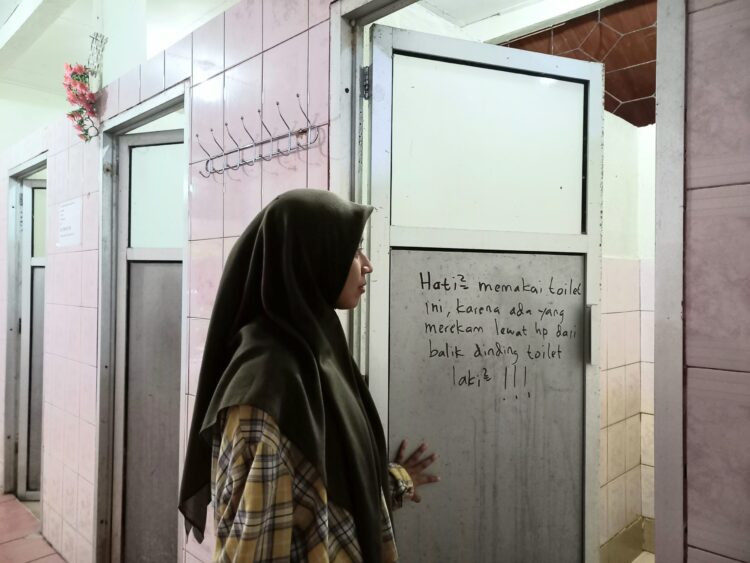 Hati² memakai toilet
ini, karena ada yang
merekam lewat hp dari
balik dinding toilet
laki² !!!